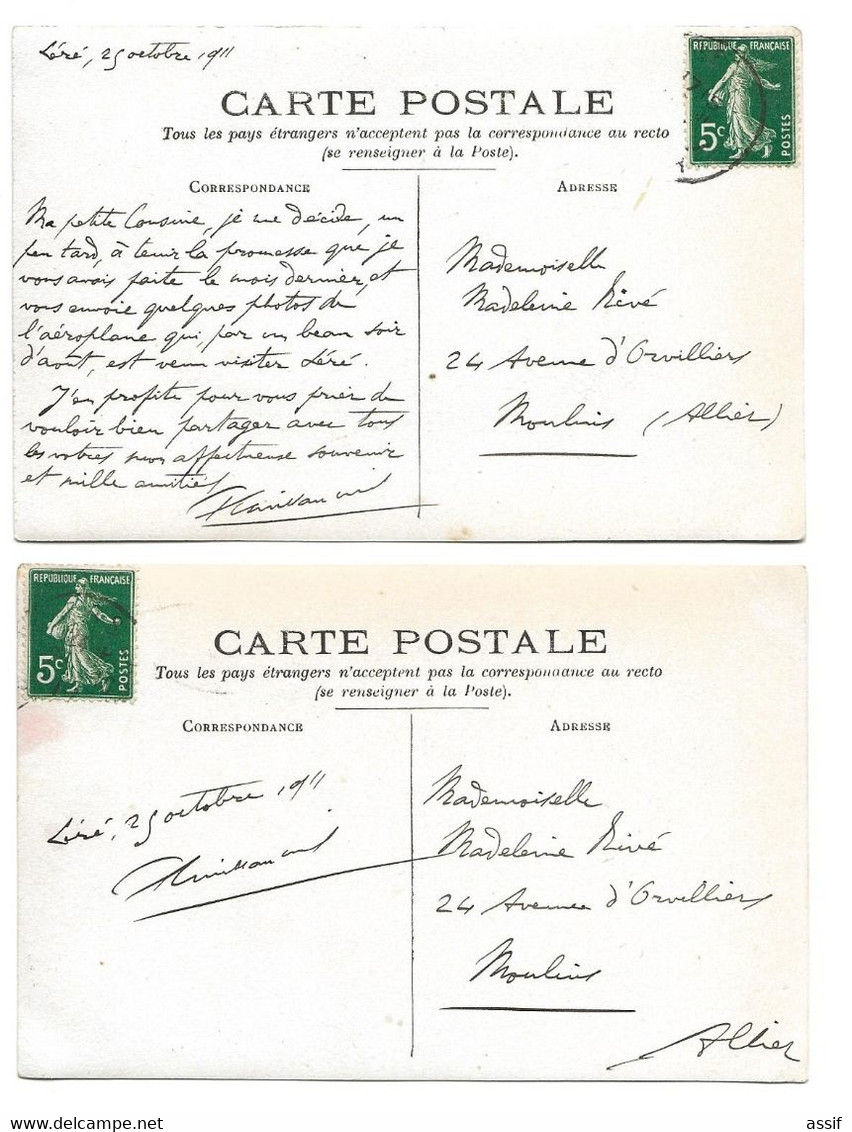 Léré, 25 octobre 1911
RÉPUBLIQUE FRANÇAISE
5c
POSTES
CARTE POSTALE
Tous les pays étrangers n'acceptent pas la correspondance au recto
(se renseigner à la Poste).
CORRESPONDANCE
Ma petite Cousine, je me décide, un
peu tard, à tenir la promesse que je
vous avais faite le mois dernier, et
vous envoie quelques photos de
l'aéroplane qui, par un beau soir
d'août, est venu visiter Léré.
J'en profite pour vous prier de
vouloir bien partager avec tous
les vôtres mon affectueuse souvenir
et mille amitiés
ADRESSE
Mademoiselle
Madeleine Rivé
24 Avenue d'Orvilliers
Moulins (Allier)
RÉPUBLIQUE FRANÇAISE
5c
POSTES
CARTE POSTALE
Tous les pays étrangers n'acceptent pas la correspondance au recto
(se renseigner à la Poste).
CORRESPONDANCE
Léré, 25 octobre 1911
ADRESSE
Mademoiselle
Madeleine Rivé
24 Avenue d'Orvilliers
Moulins
Allier
www.delcampe.net
assif